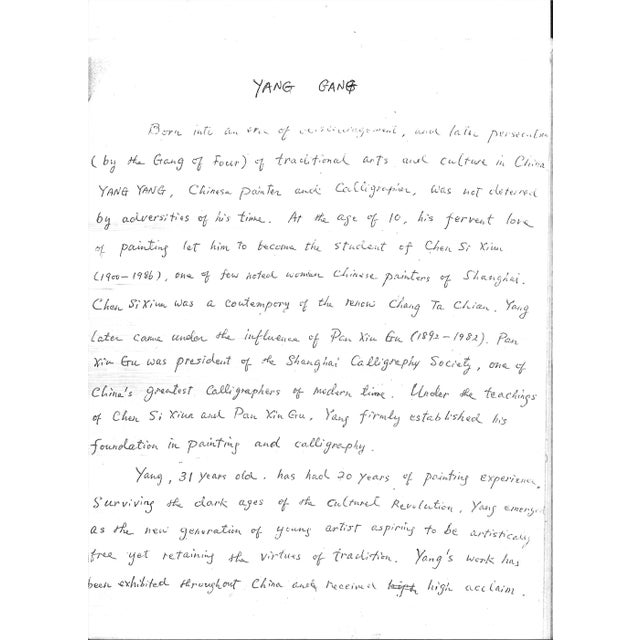 YANG GANG
Born into an era of discouragement, and later persecution
(by the Gang of Four) of traditional arts and culture in China
YANG YANG, Chinese painter and Calligrapher, was not deterred
by adversities of his time. At the age of 10, his fervent love
of painting let him to become the student of Chen Si Xiua
(1900-1986), one of few noted women Chinese painters of Shanghai.
Chen Si Xiua was a contempory of the renow Chang Ta Chian. Yang
later came under the influence of Pan Xin Gu (1892-1982). Pan
Xin Gu was president of the Shanghai Calligraphy Society, one of
China's greatest Calligraphers of modern time. Under the teachings
of Chen Si Xiua and Pan Xin Gu, Yang firmly established his
foundation in painting and calligraphy.
Yang, 31 years old. has had 20 years of painting experience.
Surviving the dark ages of the Cultural Revolution, Yang emerged
as the new generation of young artist aspiring to be artistically
free yet retaining the virtues of tradition. Yang's work has
been exhibited throughout China and received high acclaim.